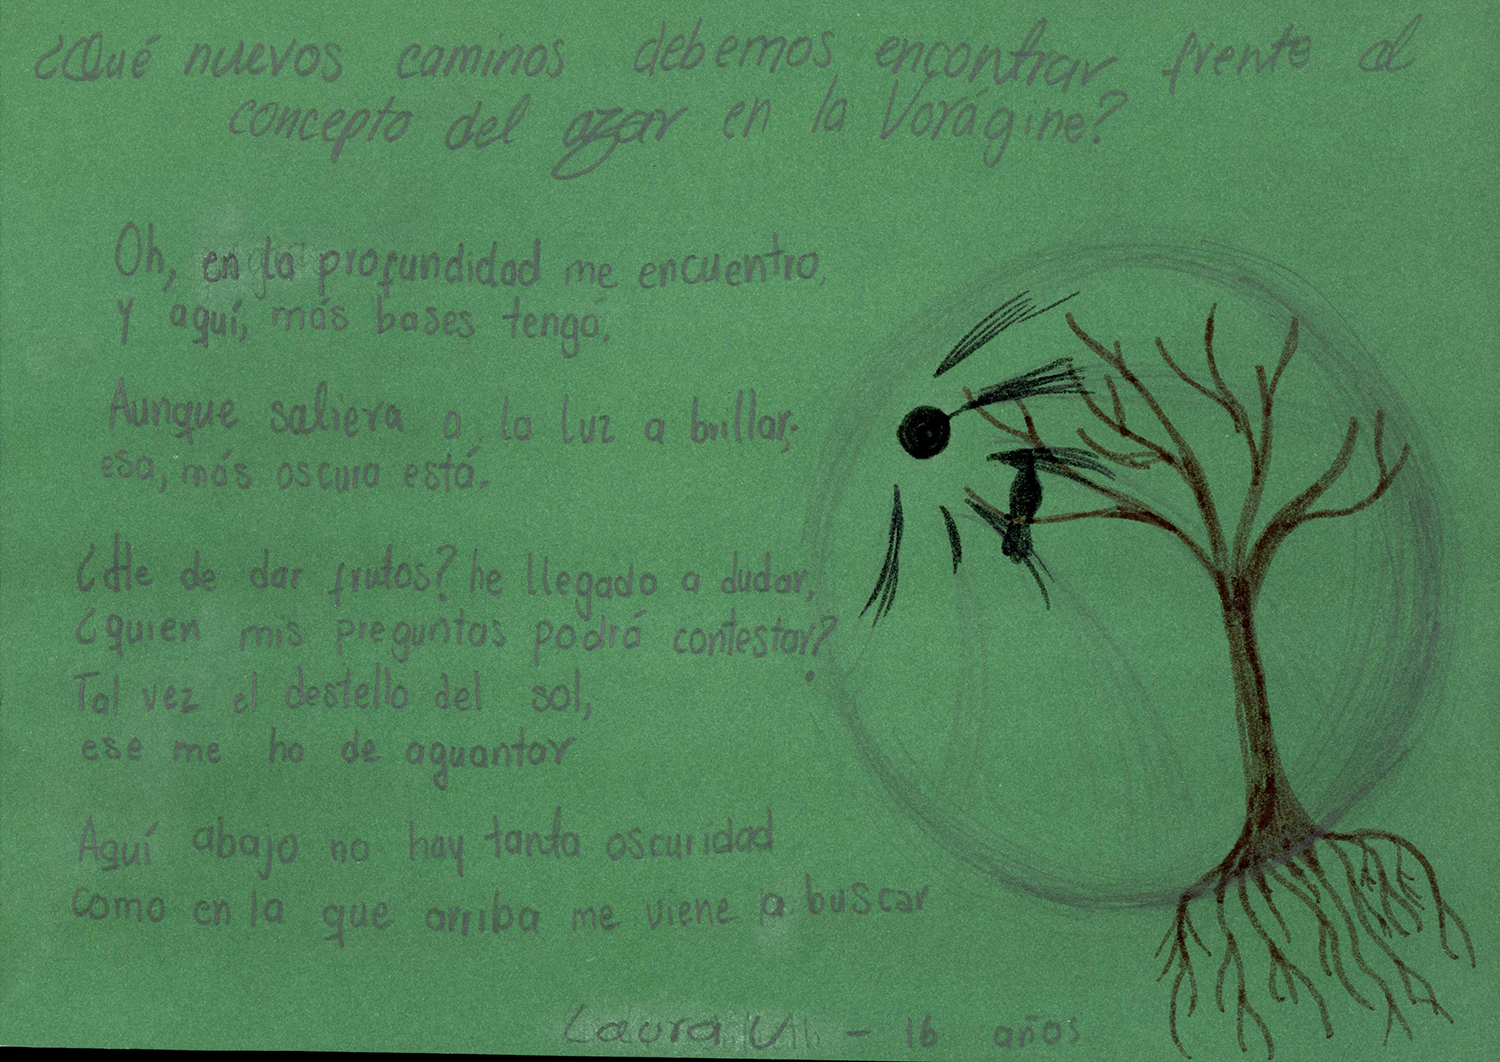 ¿Qué nuevos caminos debemos encontrar frente al
concepto del azar en la Vorágine?
Oh, en la profundidad me encuentro,
y aquí, más bases tengo.
Aunque saliera a la luz a brillar;
esa, más oscura está.
¿He de dar frutos? he llegado a dudar,
¿quien mis preguntas podrá contestar?
Tal vez el destello del sol,
ese me ha de aguantar
Aquí abajo no hay tanta oscuridad
como en la que arriba me viene a buscar
Laura U - 16 años